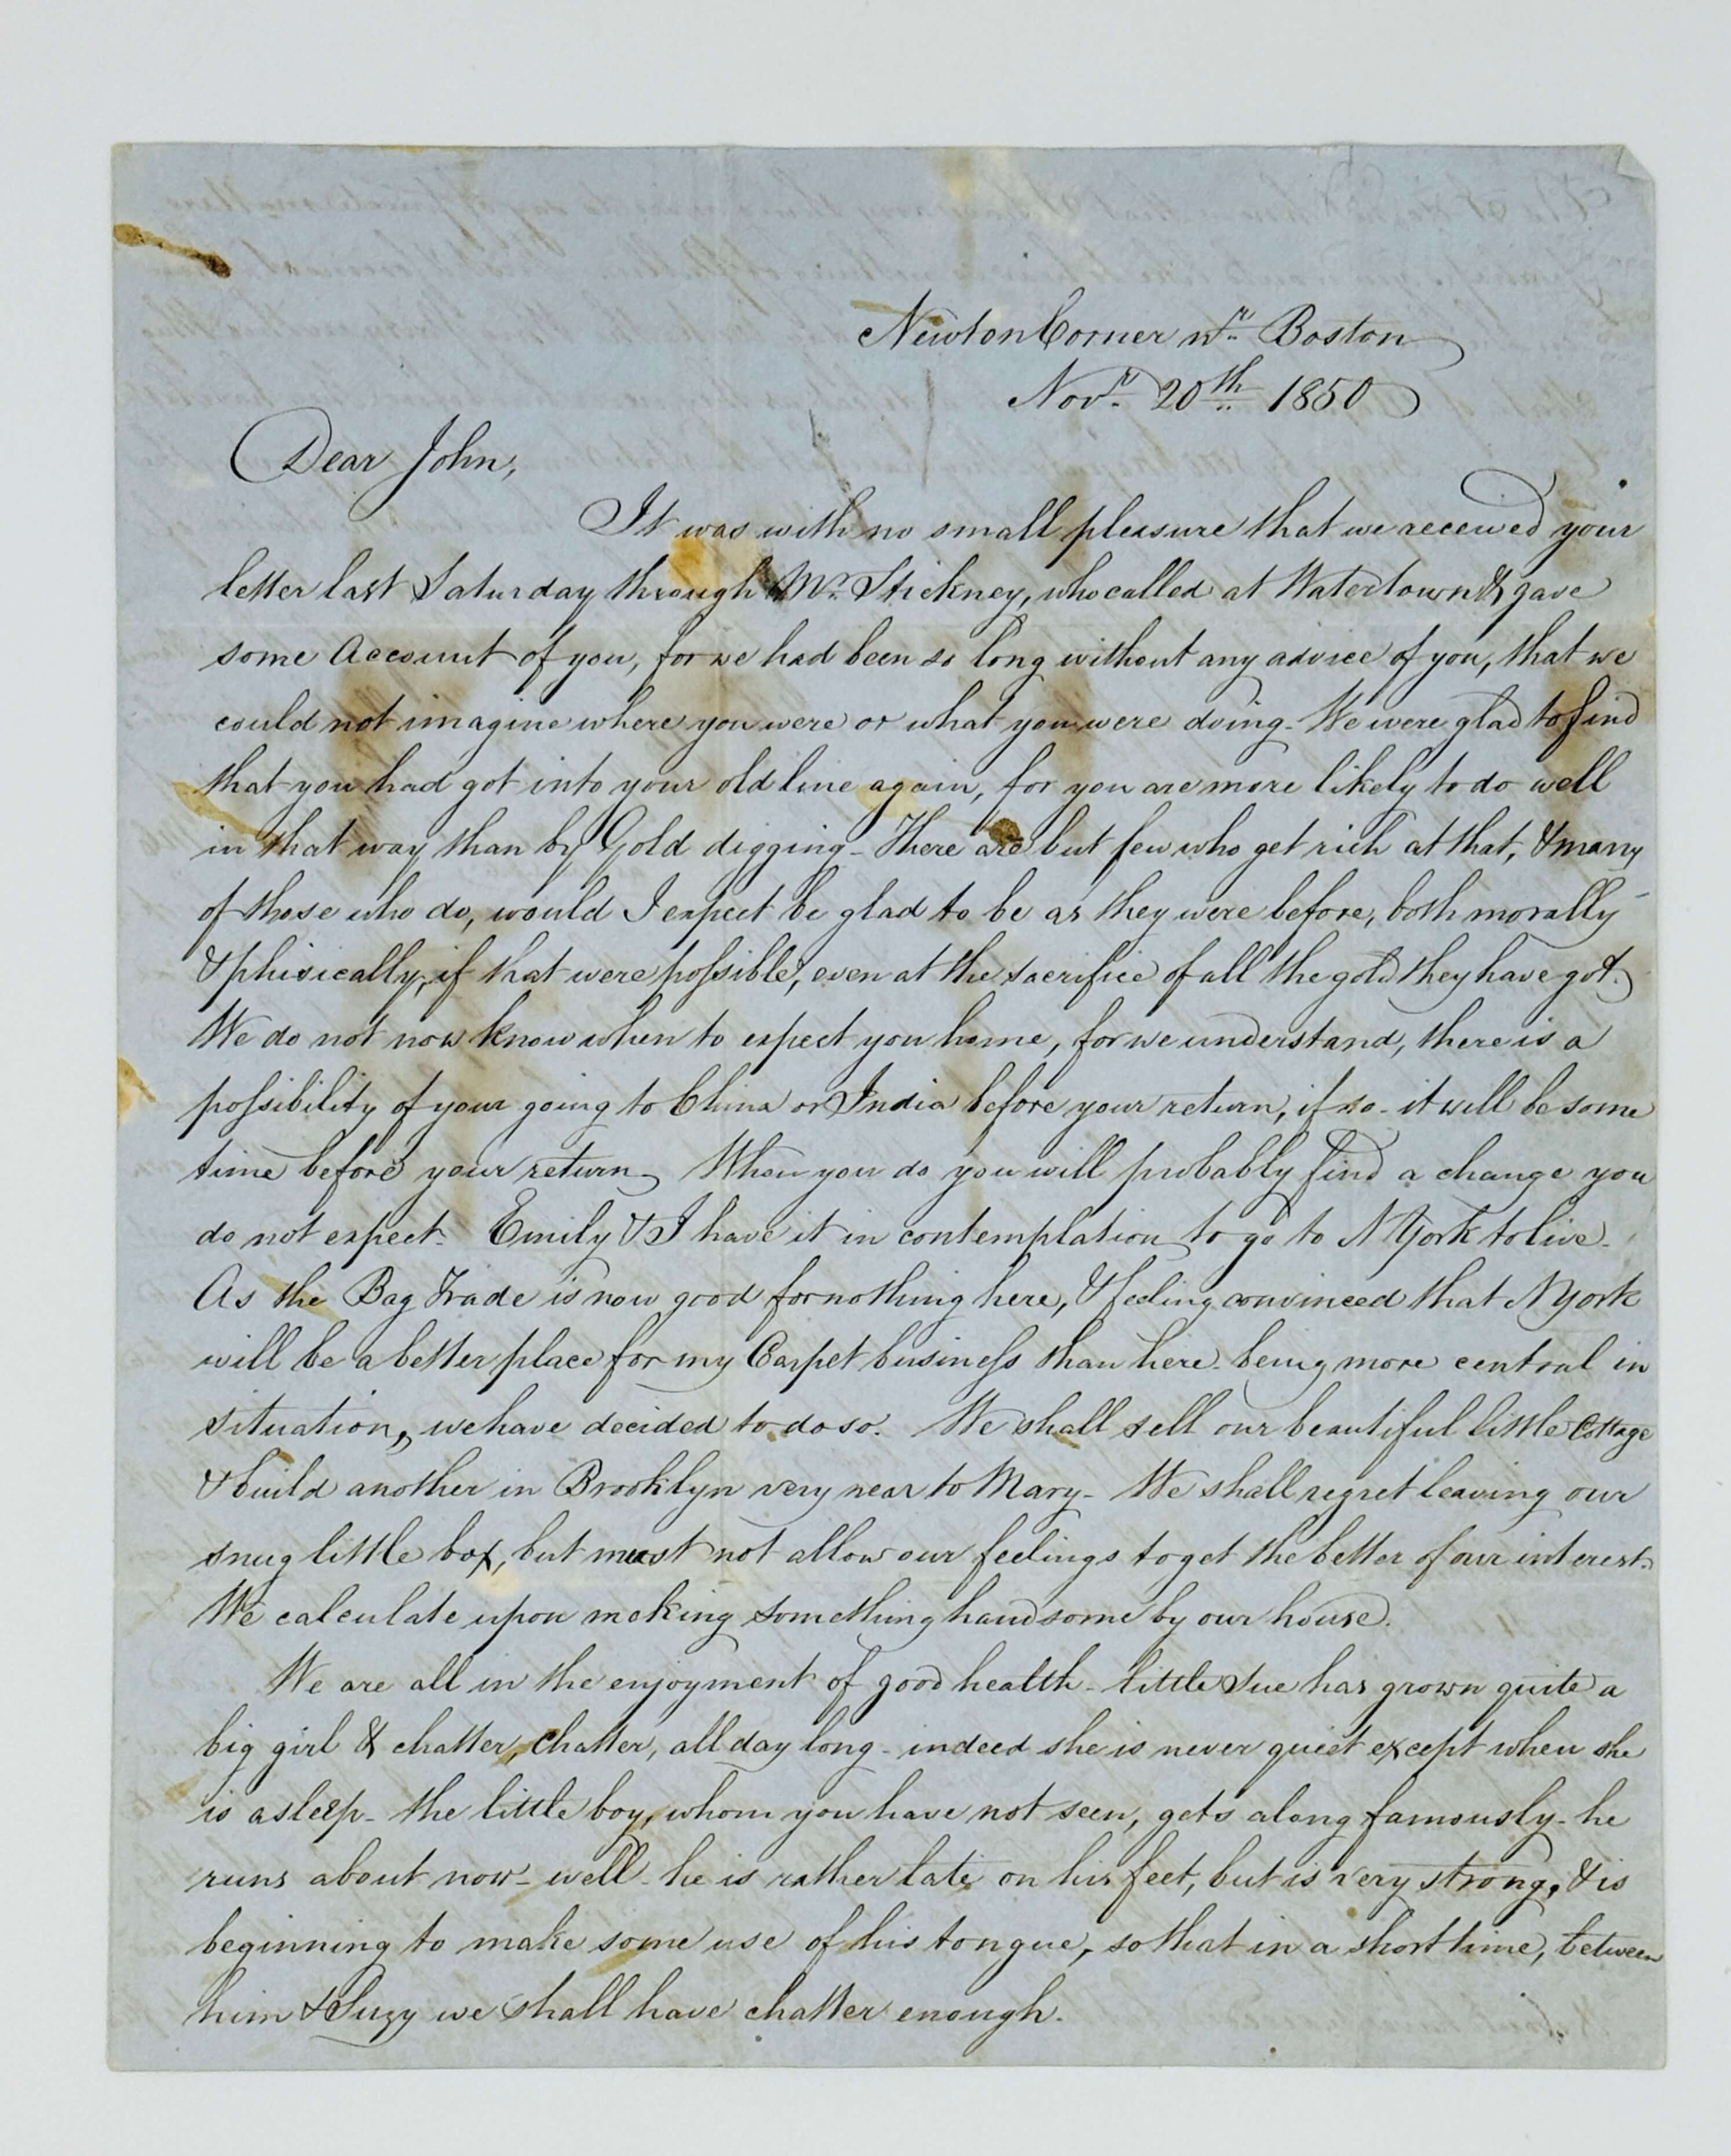 Newton Corner nr. Boston
Novr. 20th 1850
Dear John,
It was with no small pleasure that we received your
letter last Saturday through Mr. Stickney, who called at Watertown & gave
some Account of you, for we had been so long without any advice of you, that we
could not imagine where you were or what you were doing - We were glad to find
that you had got into your old line again, for you are more likely to do well
in that way than by Gold digging - There are but few who get rich at that, & many
of those who do, would I expect be glad to be as they were before, both morally
& phisically, if that were possible, even at the sacrifice of all the gold they have got.
We do not now know when to expect you home, for we understand, there is a
possibility of your going to China or India before your return, if so - it will be some
time before your return - When you do you will probably find a change you
do not expect. Emily & I have it in contemplation to go to N York to live -
As the Bag Trade is now good for nothing here, & feeling convinced that N York
will be a better place for my Carpet business than here - being more central in
situation, we have decided to do so. We shall sell our beautiful little Cottage
& build another in Brooklyn very near to Mary - We shall regret leaving our
snug little box, but must not allow our feelings to get the better of our interest.
We calculate upon making something handsome by our house.
We are all in the enjoyment of good health - little Sue has grown quite a
big girl & chatter, chatter, all day long - indeed she is never quiet except when she
is asleep - the little boy, whom you have not seen, gets along famously - he
runs about now - well - he is rather late on his feet, but is very strong, & is
beginning to make some use of his tongue, so that in a short time, between
him & Suzy we shall have chatter enough.